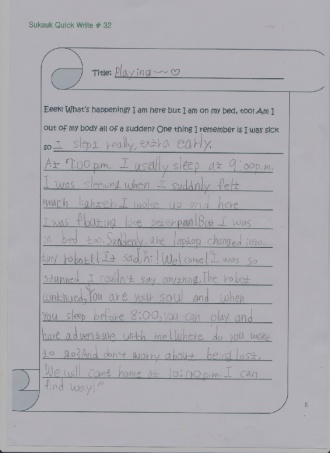 Sukauk Quick Write # 32
Title: Playing~~♡
Eeek! What's happening? I am here but I am on my bed, too! Am I
out of my body all of a sudden? One thing I remember is I was sick
so I slept really, extra early.
At 7:00 p.m. I usally sleep at 9:00p.m.
I was sleeping when I suddnly felt
much lighter. I woke up and here
I was floating like peterpan! But I was
in bed too. Suddenly, the laptop changed into
tiny robot!! It said, hi! Welcome! I was so
stunned I couldn't say anything. The robot
continued, You are your soul and when
you sleep before 8:00, you can play and
have adventure with me! Where do you want
to go? And don't worry about being lost.
We will come home at 10:00 pm I can
find way!"